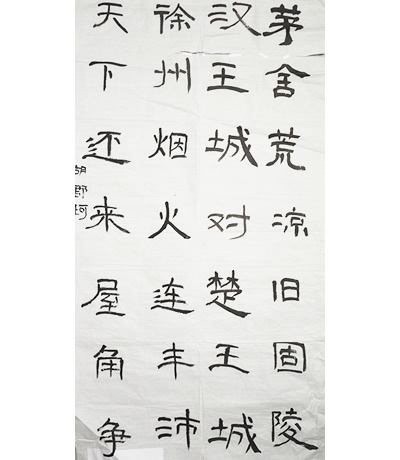 茅舍荒凉旧固陵
汉王城对楚王城
徐州烟火连丰沛
天下还来屋角争
胡郡珂